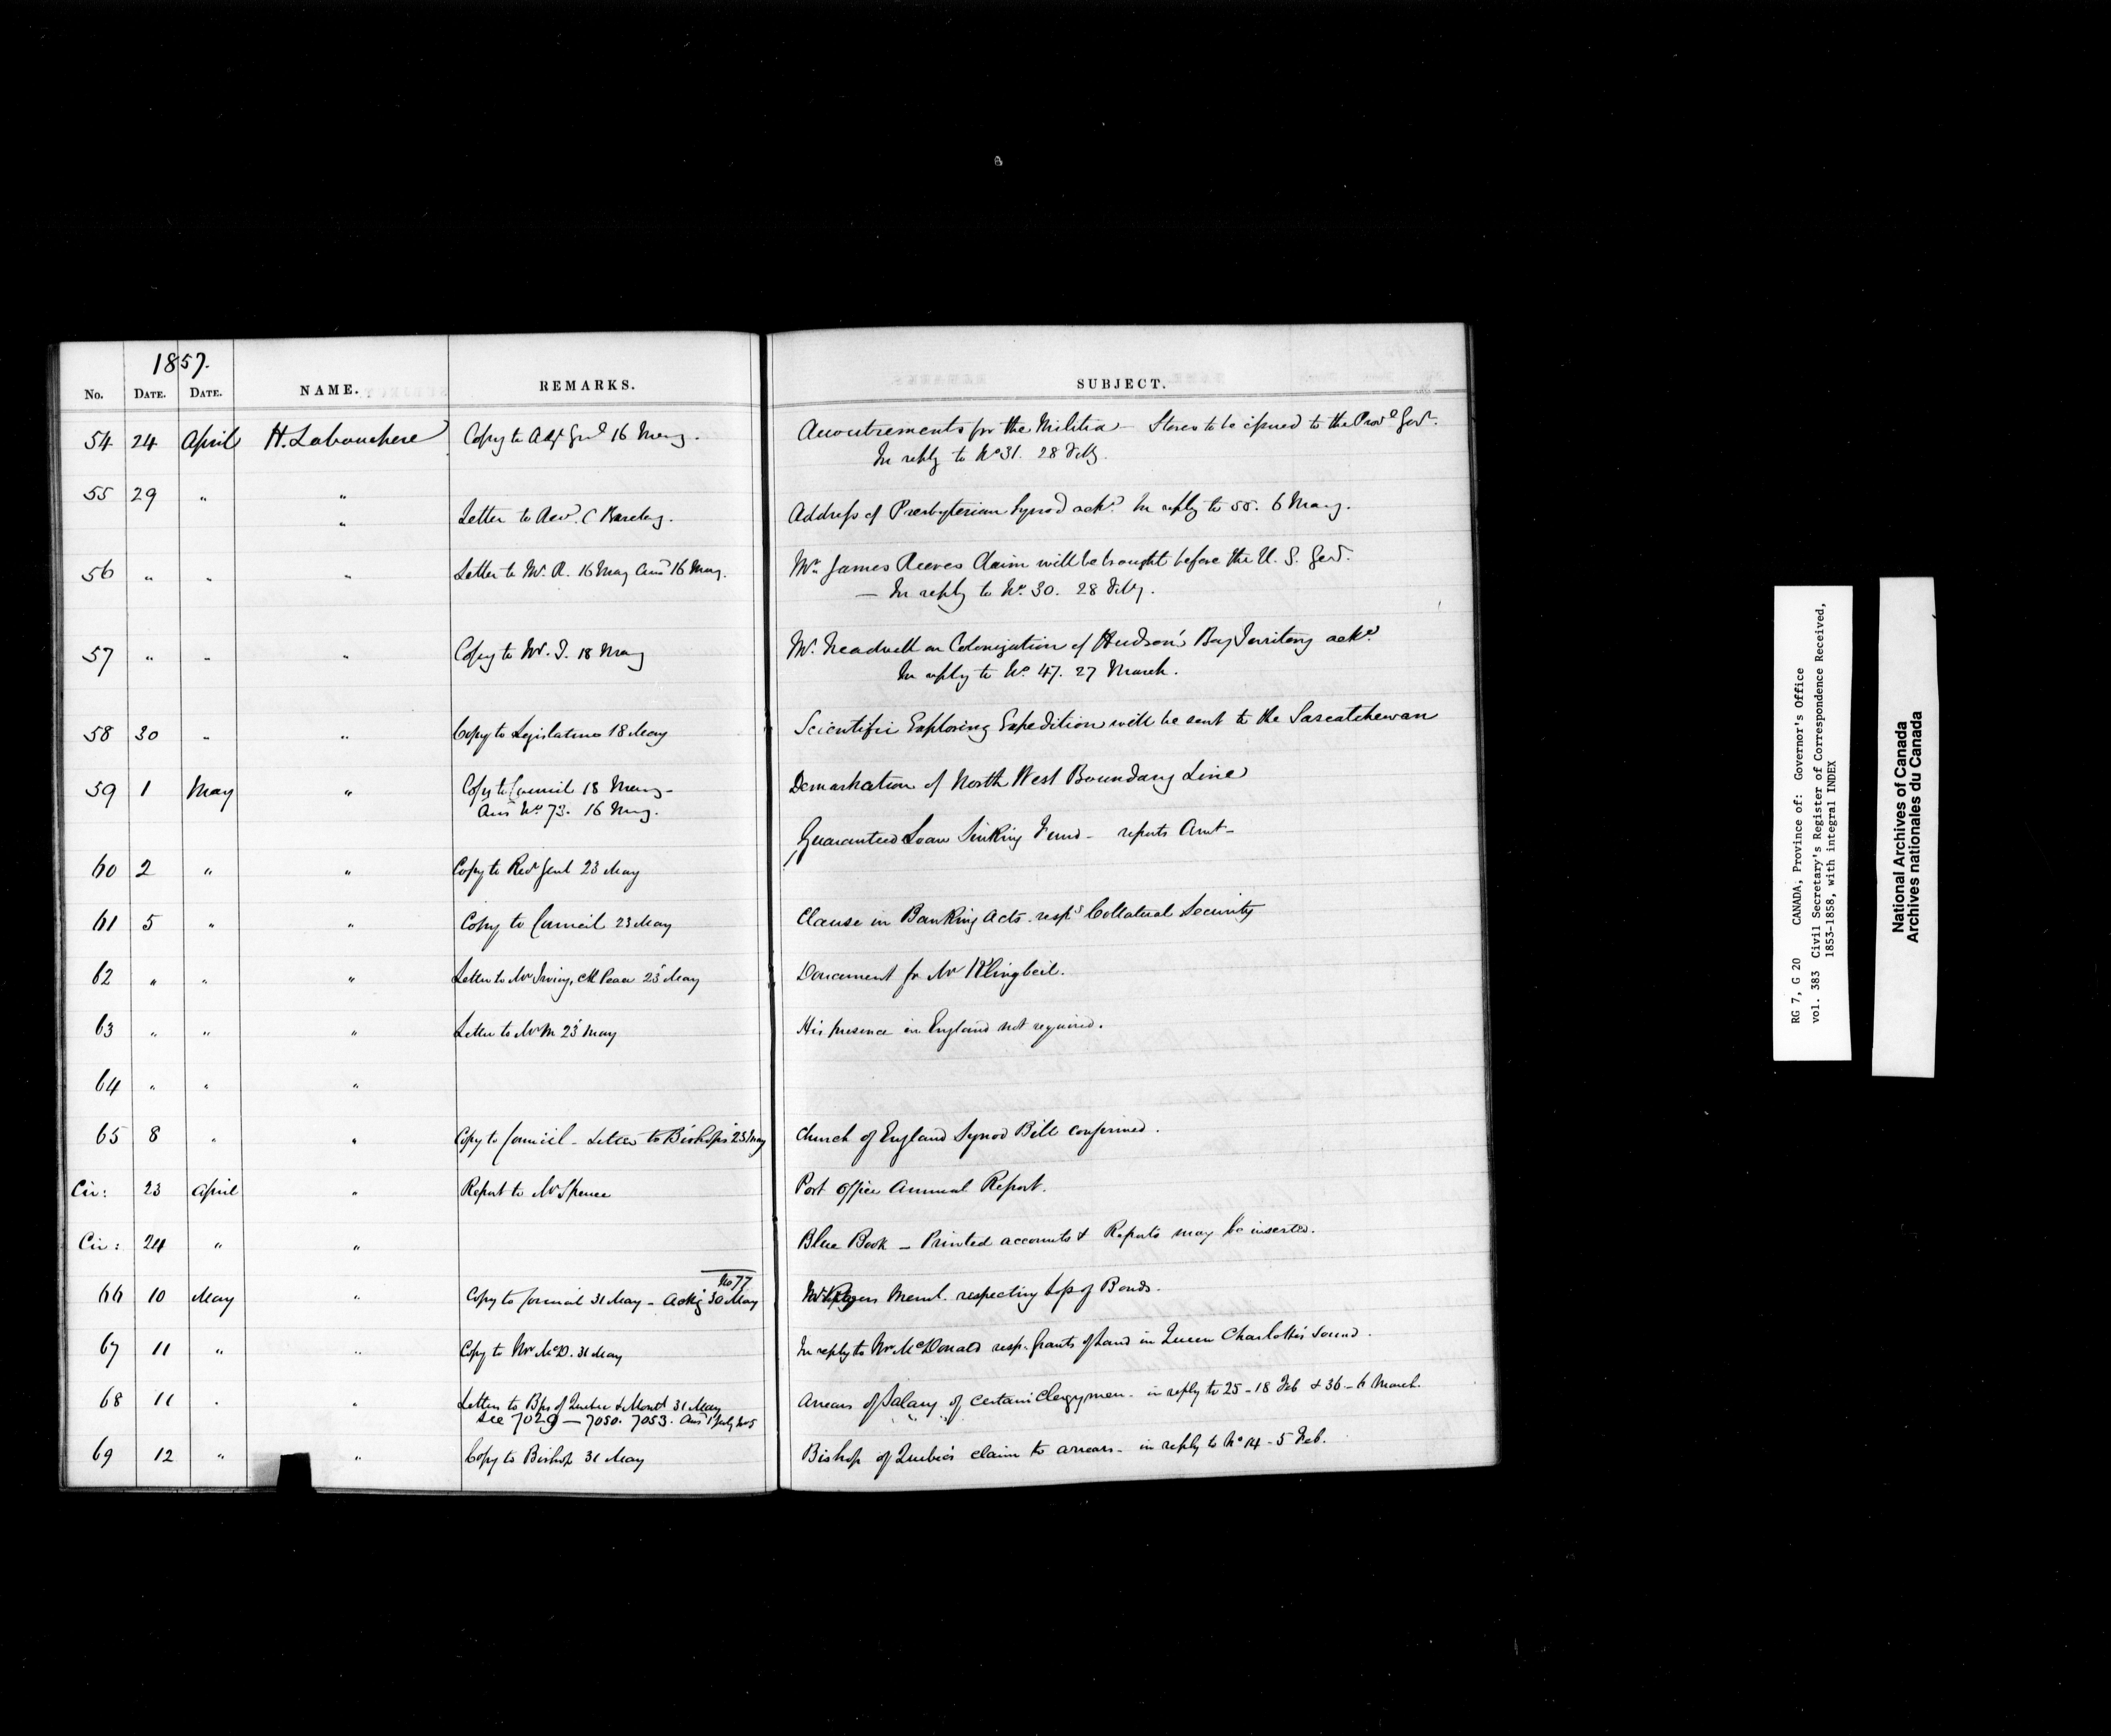 1857.
No. DATE. DATE. NAME. REMARKS. SUBJECT.
54 24 April H. Labouchere Copy to Adjt Genl 16 May. Accoutrements for the Militia — Stores to be issued to the Provl Govt.
In reply to No 31. 28 Feby.
55 29 " "
" Letter to Revd. C Barclay. Address of Presbyterian Synod ackd. In reply to 55. 6 May.
56 " " " Letter to Mr. R. 16 May Ansd 16 May. Mr. James Reeves Claim will be brought before the U. S. Govt.
— In reply to No. 30. 28 Feby.
57 " " " Copy to Mr. T. 18 May Mr. on Colonization of Hudson's Bay Territory ackd.
In reply to No. 47. 27 March.
58 30 " " Copy to Legislature 18 May Scientific Exploring Expedition will be sent to the Sascatchewan
59 1 May " Copy to Council 18 May — Demarkation of North West Boundary Line
Ans No 73. 16 May.
Guaranteed Loan Sinking Fund — reports Amt —
60 2 " " Copy to Recr Genl 23 May
61 5 " " Copy to Council 23 May Clause in Banking Acts. respg Collateral Security
62 " " " Letter to Mr Irving, 23 May Document for Mr Klingbeil.
63 " " " Letter to Mr M 23 May His presence in England not required.
64 " " "
65 8 " " Copy to Council — Letter to Bishops 23 May Church of England Synod Bill confirmed.
Cir: 23 April " Report to Mr Spence Post Office Annual Report.
Cir: 24 " " Blue Book — Printed accounts & Reports may be inserted.
No 77
66 10 May " Copy to Council 31 May — Ackg 30 May Meml. respecting loss of Bonds.
67 11 " " Copy to Mr McD. 31 May In reply to Mr McDonald resp. Grants of Land in Queen Charlotte's Sound.
68 11 " " Letters to Bps of Quebec & Montl 31 May Arrears of Salary of certain Clergymen. in reply to 25 — 18 Feb & 36 — 6 March.
See 7029 — 7050. 7053. Ans 1 July No 5
69 12 " " Copy to Bishop 31 May Bishop of Quebec's claim to arrears — in reply to No 14 — 5 Feb.
RG 7, G 20 CANADA, Province of: Governor's Office
vol. 383 Civil Secretary's Register of Correspondence Received,
1853-1858, with integral INDEX
National Archives of Canada
Archives nationales du Canada